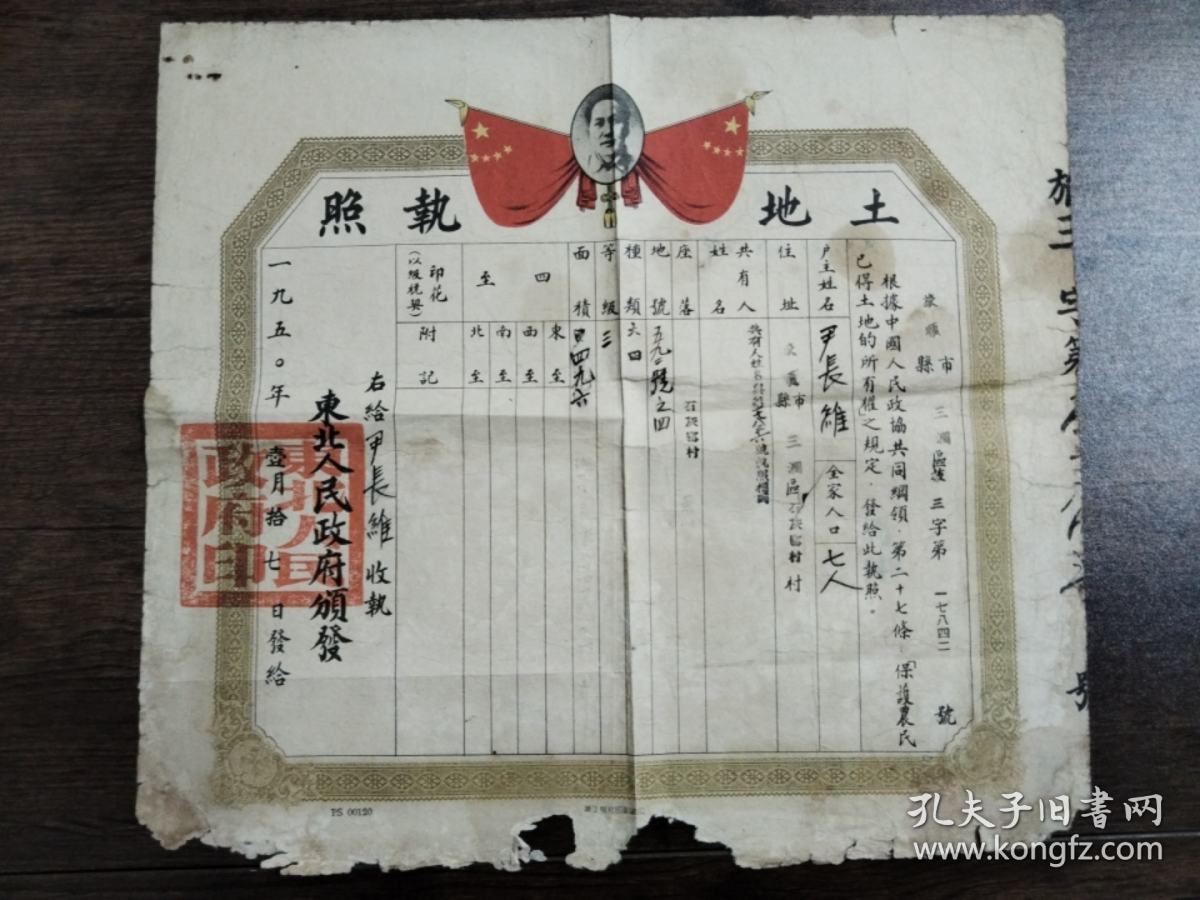 土地執照
市
縣
三澗區
三字第一七八四二號
根據中國人民政協共同綱領，第二十七條：「保護農民
已得土地的所有權」之規定，發給此執照。
戶主姓名
甲長維
全家人口
七人
住址
市
縣
三澗區
村
共有人
姓名
座落
村
地號
五九二號之四
種類
六四
等級
三
面積
四九六
四至
東至
西至
南至
北至
印花
(以級稅契)
附記
右給甲長維收執
東北人民政府頒發
一九五〇年壹月拾七日發給
東北人民
政府印
號
PS 00120
孔夫子旧书网
www.kongfz.com